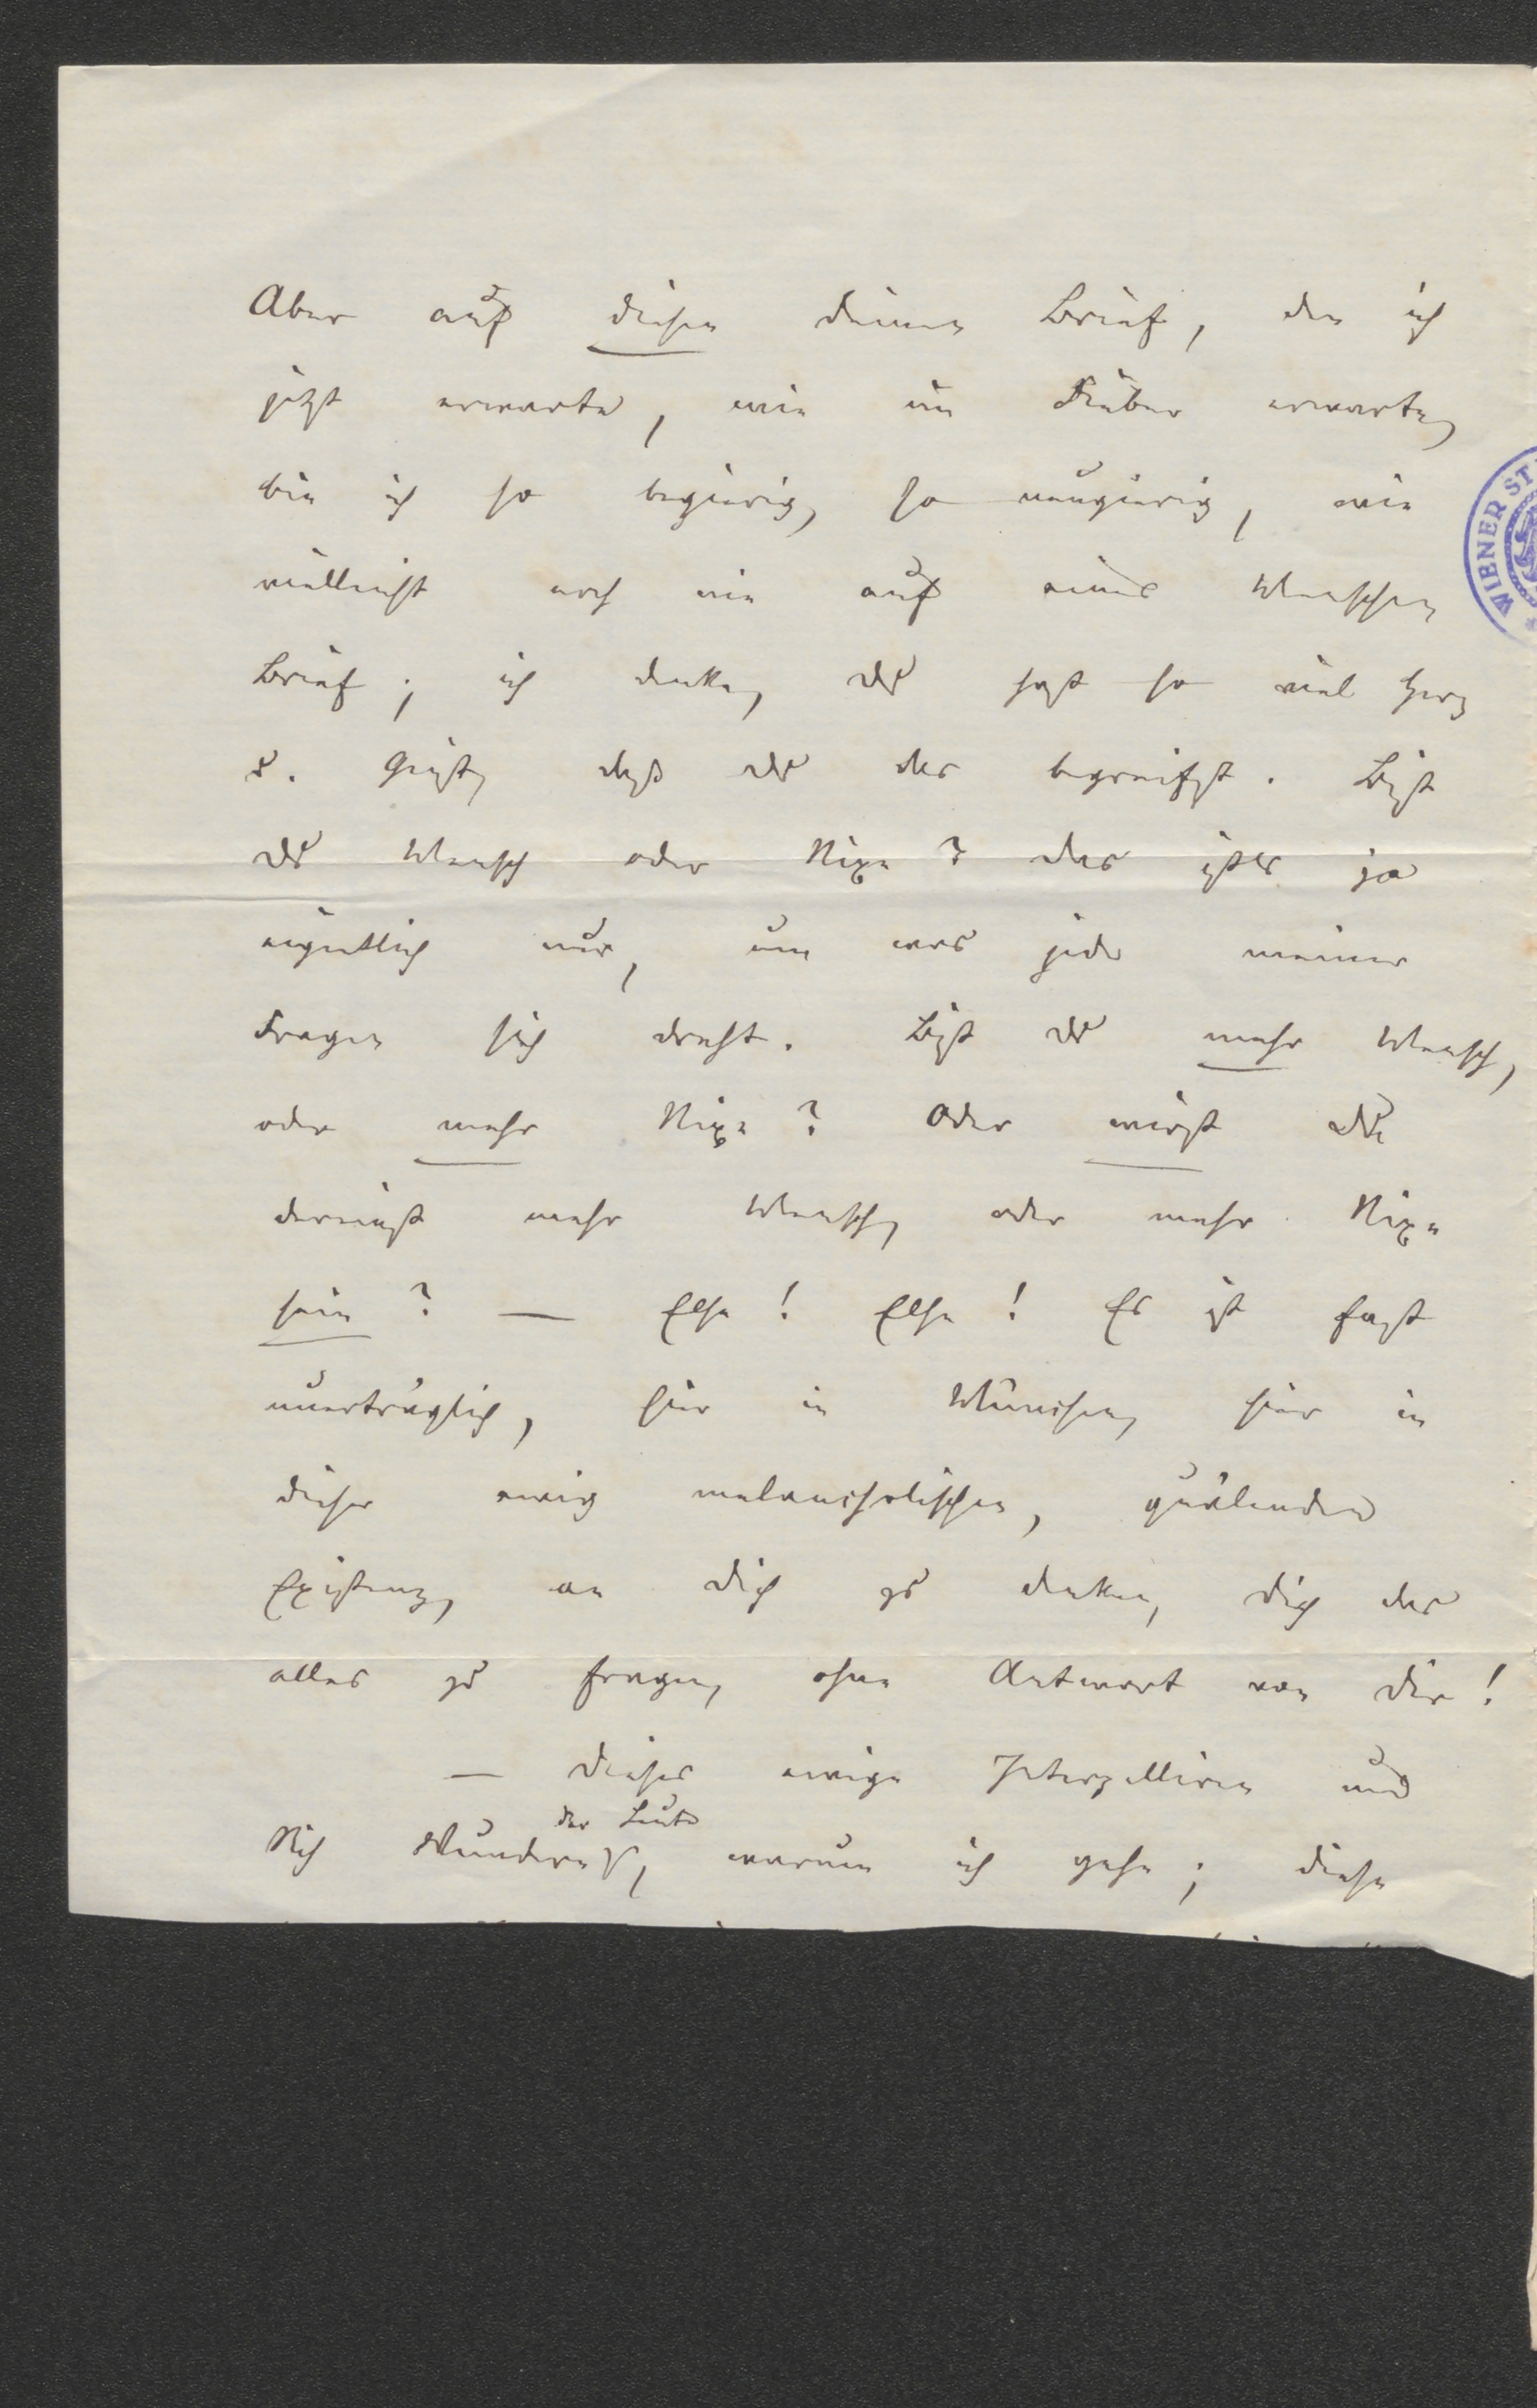 Aber auf diesen deinen Brief, den ich
jetzt erwarte, wie im Fieber erwarte,
bin ich so begierig, so neugierig, wie
vielleicht noch nie auf eines Menschen
Brief; ich denke, du hast so viel Herz
u. Geist, daß du das begreifst. Bist
du Mensch oder Nixe? das ists ja
eigentlich nur, um was jede meiner
Fragen sich dreht. Bist du mehr Mensch,
oder mehr Nixe? Oder wirst du
dereinst mehr Mensch, oder mehr Nixe
sein? — Else! Else! Es ist fast
unerträglich, hier in München, hier in
dieser ewig melancholischen, quälenden
Existenz, an dich zu denken, dich das
alles zu fragen, ohne Antwort von dir!
— Dieses ewige Interpelliren und
der Leute
Sich Wundern, warum ich gehe; diese
WIENER ST